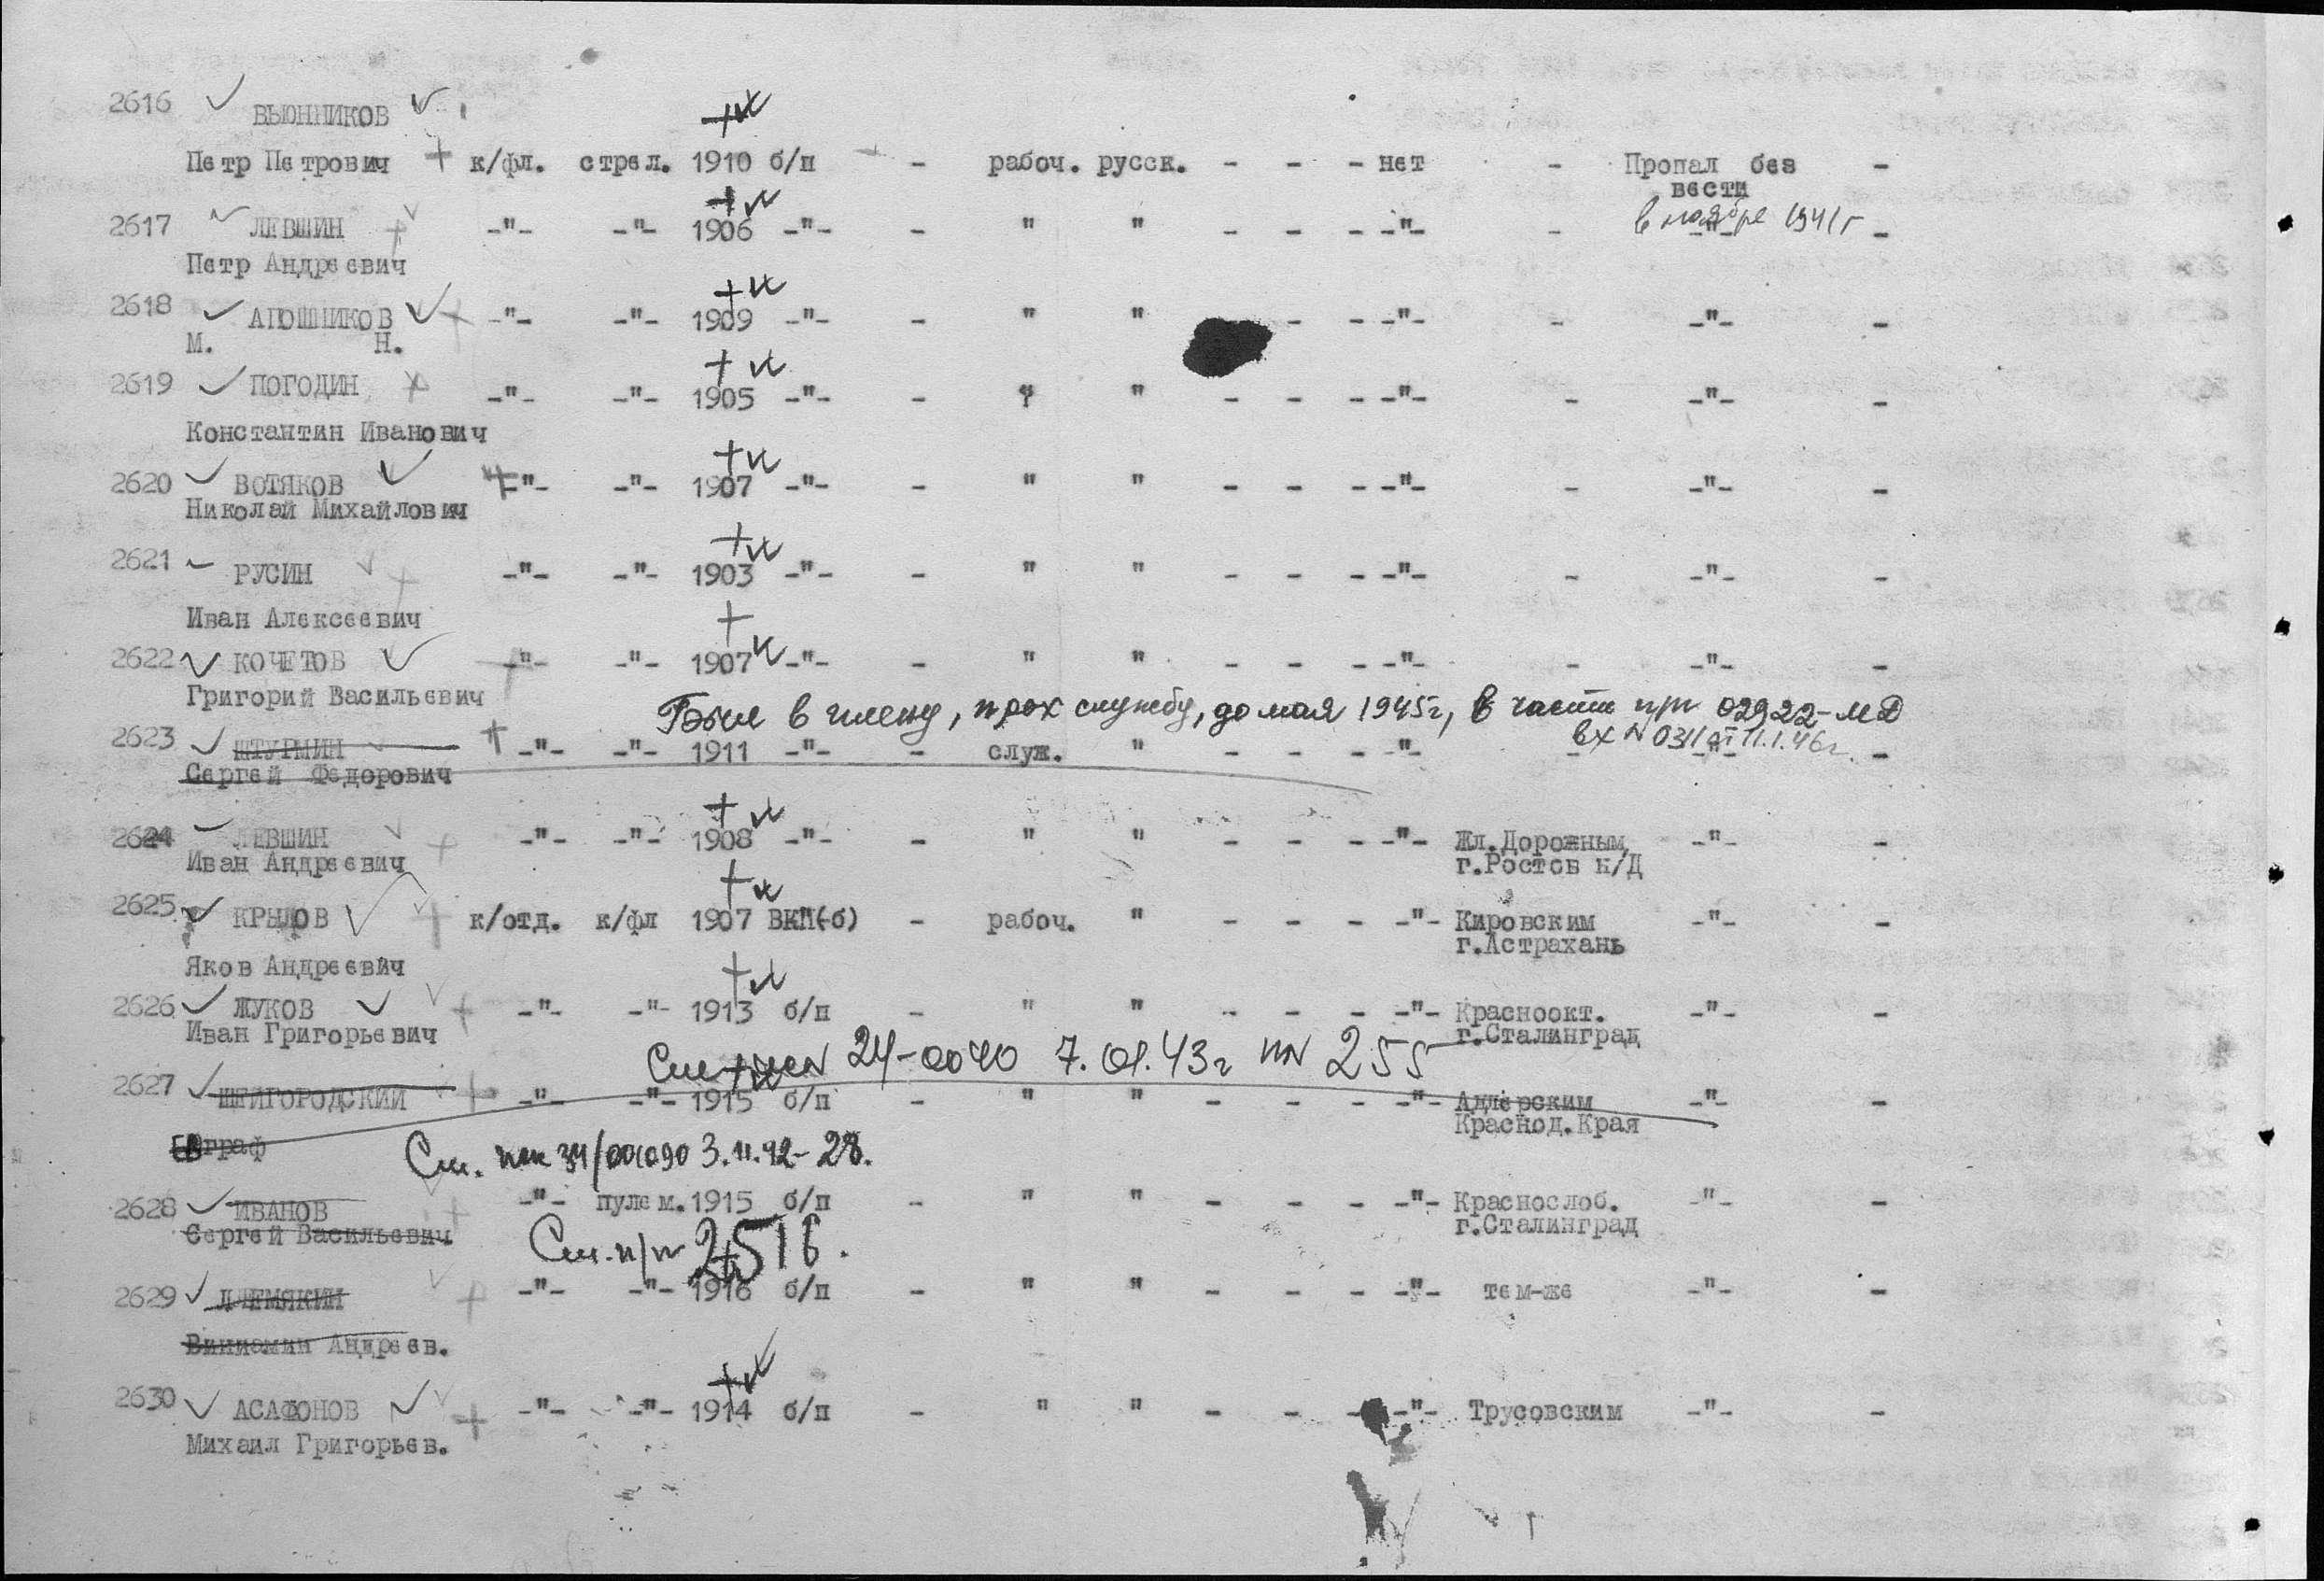 2616 ВЬЮННИКОВ
Петр Петрович к/фл. стрел. 1910 б/п - рабоч. русск. - - - нет - Пропал без вести -
в ноябре 1941г
2617 ЛЕВШИН -"- -"- 1906 -"- - " " - - - -"- - -"- -
Петр Андреевич
2618 -"- -"- 1909 -"- - " " - - -"- - -"- -
М. Н.
2619 ПОГОДИН -"- -"- 1905 -"- - " " - - - -"- - -"- -
Константин Иванович
2620 ВОТЯКОВ -"- -"- 1907 -"- - " " - - - -"- - -"- -
Николай Михайлович
2621 РУСИН -"- -"- 1903 -"- - " " - - - -"- - -"- -
Иван Алексеевич
2622 КОЧЕТОВ -"- -"- 1907 -"- - " " - - - -"- - -"- -
Григорий Васильевич
Был в плену, прох службу, до мая 1945г, в части п/п 02922-МД
вх N 0311 от 11.1.46г.
2623 ШТУРМИН -"- -"- 1911 -"- - служ. " - - - -"- - -"- -
Сергей Федорович
2624 ЛЕВШИН -"- -"- 1908 -"- - " " - - - -"- Жл.Дорожным -"- -
Иван Андреевич г.Ростов н/Д
2625 КРЫЛОВ к/отд. к/фл 1907 ВКП(б) - рабоч. " - - - -"- Кировским -"- -
г.Астрахань
Яков Андреевич
2626 ЖУКОВ -"- -"- 1913 б/п - " " - - - -"- Красноокт. -"- -
Иван Григорьевич г.Сталинград
24-0040 7.01.43г 255
2627 -"- -"- 1915 б/п - " " - - - -"- Адлерским -"- -
Краснод.Края
См. 3.11.42-28.
2628 ИВАНОВ -"- пулем. 1915 б/п - " " - - - -"- Краснослоб. -"- -
Сергей Васильевич г.Сталинград
См. п/п 2516.
2629 -"- -"- 1916 б/п - " " - - - -"- тем-же -"- -
Виниамин Андреев.
2630 АСАФОНОВ -"- -"- 1914 б/п - " " - - - -"- Трусовским -"- -
Михаил Григорьев.